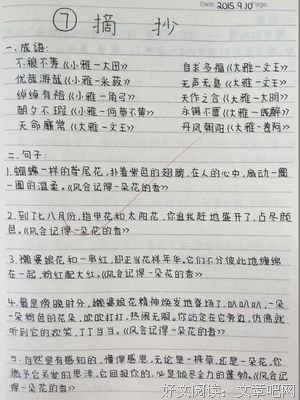 Date. 2015.9.10 Page.
⑦ 摘 抄
一、成语:
不稂不莠《小雅—大田》 自求多福《大雅—文王》
优哉游哉《小雅—采菽》 无声无臭《大雅—文王》
绰绰有裕《小雅—角弓》 天作之合《大雅—大明》
朝夕不暇《小雅—何草不黄》 永锡不匮《大雅—既醉》
天命靡常《大雅—文王》 丹凤朝阳《大雅—卷阿》
二、句子:
1.蝴蝶一样的首尾花,扑着紫色的翅膀,在人的心中,扇动一圈
一圈的温柔。《风会记得一朵花的香》
2.到了七八月份,指甲花和太阳花,你追我赶地盛开了,占尽颜
色。《风会记得一朵花的香》
3.懒婆娘花和一串红,却正当花样年华,它们不分彼此地缠绵
在一起,粉红配大红。《风会记得一朵花的香》
4.最是傍晚时分,懒婆娘花精神焕发地登场了,叭叭叭,一朵
一朵粉色的花朵,吹吹打打,热闹无限。你站定在它旁边,仿佛就
听到它的欢笑,丁丁当当。《风会记得一朵花的香》
5.自然是有感知的,懂得感恩,无论是一株草,还是一朵花,你
赋予它关爱的恩泽,它回报你的,必是倾尽全力的蓬勃。《风会记
得一朵花的香》
好文阅读:文章吧网